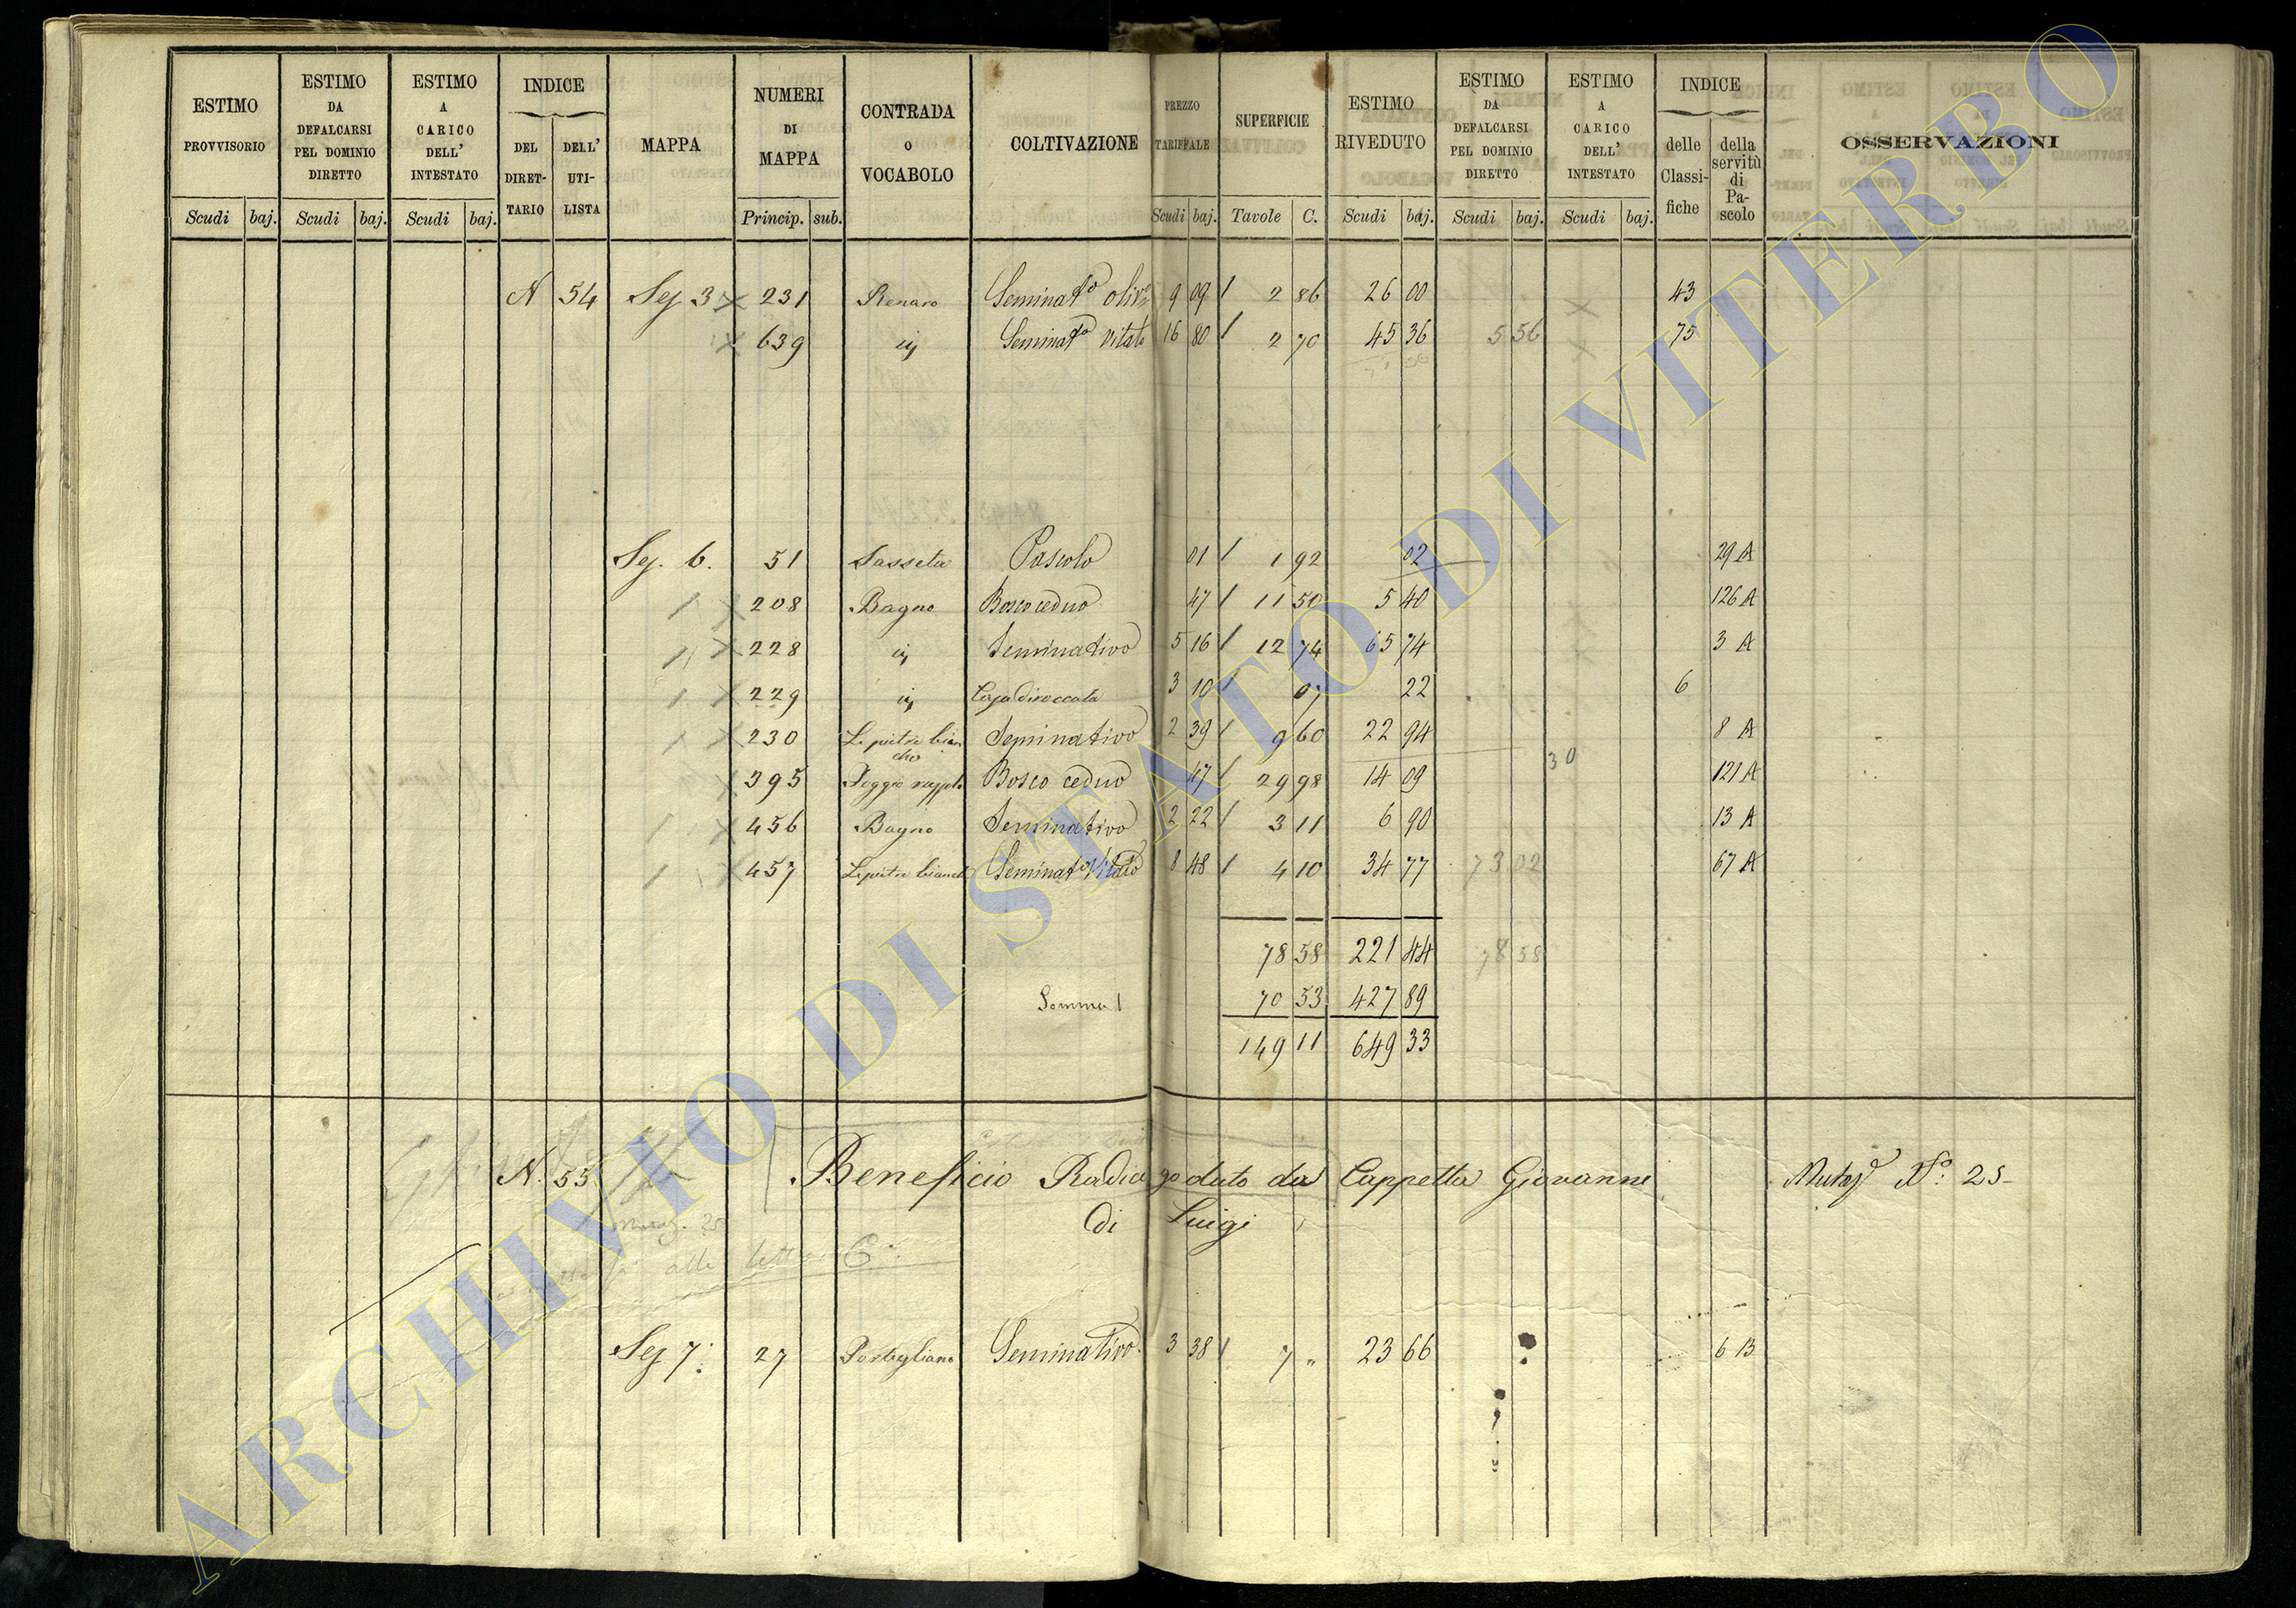 ESTIMO PROVVISORIO | ESTIMO DA DEFALCARSI PEL DOMINIO DIRETTO | ESTIMO A CARICO DELL' INTESTATO | INDICE DEL DIRET-TARIO | DELL' UTI-LISTA | MAPPA | NUMERI DI MAPPA | CONTRADA O VOCABOLO | COLTIVAZIONE | PREZZO TARIFFALE | SUPERFICIE | ESTIMO RIVEDUTO | ESTIMO DA DEFALCARSI PEL DOMINIO DIRETTO | ESTIMO A CARICO DELL' INTESTATO | INDICE delle Classi-fiche | della servitù di Pa-scolo | OSSERVAZIONI
Scudi baj. | Scudi baj. | Scudi baj. | Princip. sub. | Scudi baj. | Tavole C. | Scudi baj. | Scudi baj. | Scudi baj.
N 54 Sez 3 231 Renaro Seminat.o oliv.o 9 09 2 86 26 00 43
639 id Seminat.o vitato 16 80 2 70 45 36 5 56 75
Sez. 6. 51 Sasseta Pascolo 01 1 92 02 29 A
208 Bagno Bosco ceduo 47 11 50 5 40 126 A
228 id Seminativo 5 16 12 74 65 74 3 A
229 id Casa diroccata 3 10 07 22 6
230 Le pietre bianche Seminativo 2 39 9 60 22 94 8 A
30
395 Poggio Bosco ceduo 47 29 98 14 09 121 A
456 Bagno Seminativo 2 22 3 11 6 90 13 A
457 Le pietre bianche Seminat.o Vitato 8 48 4 10 34 77 73 02 67 A
78 58 221 44 78 58
Somma 70 53 427 89
149 11 649 33
N. 55 Beneficio Radica goduto da Cappetta Giovanni Mutaz.e N.o 25
di Luigi
alla lettera C
Sez 7. 27 Portigliano Seminativo 3 38 7 " 23 66 6 B
ARCHIVIO DI STATO DI VITERBO